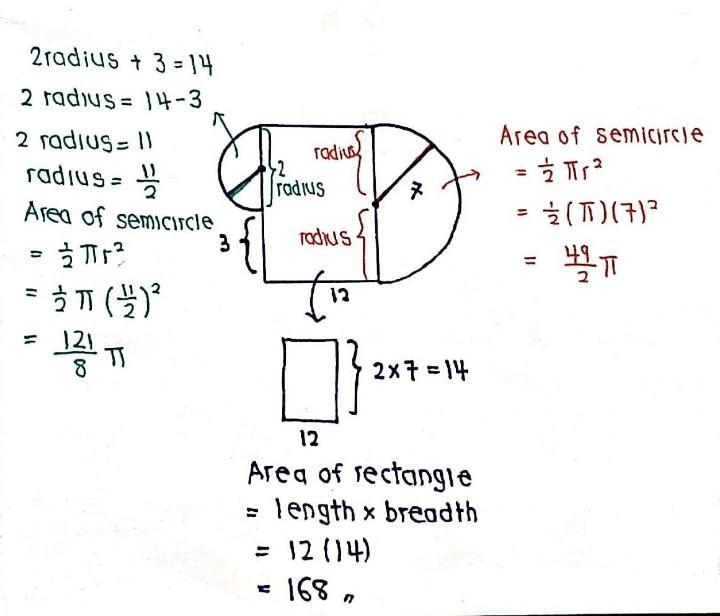 2radius + 3 = 14
2 radius = 14-3
2 radius = 11
radius = 11/2
Area of semicircle
= 1/2 πr²
= 1/2 π (11/2)²
= 121/8 π
2
radius
3
radius
radius
7
12
Area of semicircle
= 1/2 πr²
= 1/2 (π)(7)²
= 49/2 π
2x7 = 14
12
Area of rectangle
= length x breadth
= 12 (14)
= 168 〃